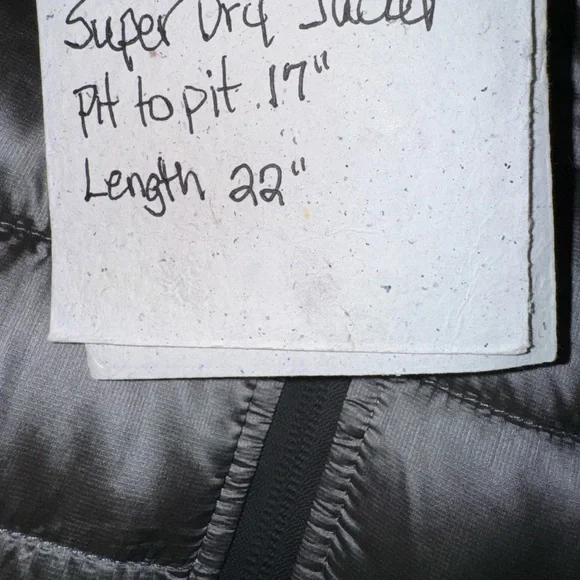 Super Dry Jacket
Pit to pit 17"
Length 22"